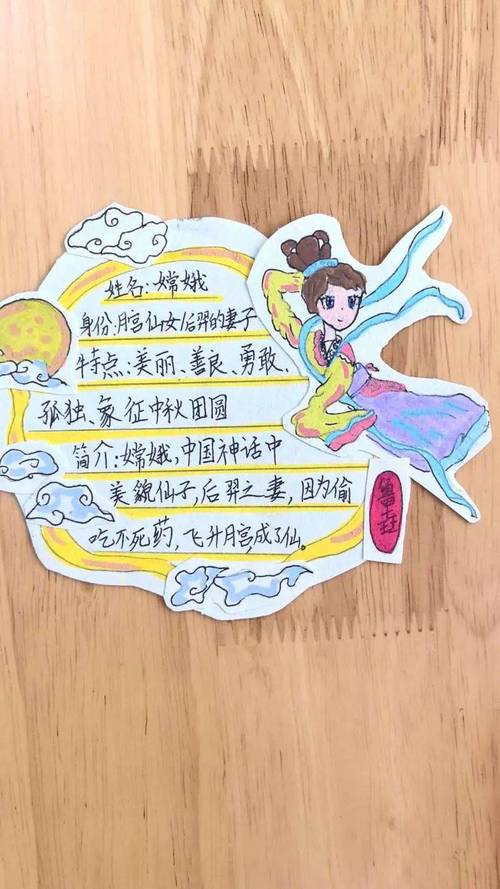 姓名：嫦娥
身份：月宫仙女后羿的妻子
特点：美丽、善良、勇敢、
孤独、象征中秋团圆
简介：嫦娥，中国神话中
美貌仙子，后羿之妻，因为偷
吃不死药，飞升月宫成了仙。